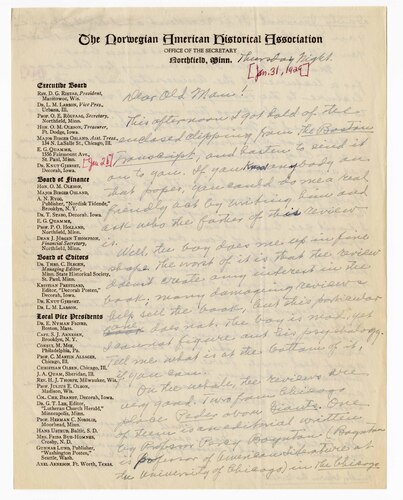 The Norwegian American Historical Association
OFFICE OF THE SECRETARY
Northfield, Minn. Thursday Night
[Jan. 31, 1929]
Executive Board
Rev. D. G. Ristad, President,
Manitowoc, Wis.
Dr. L. M. Larson, Vice Pres.,
Urbana, Ill.
Prof. O. E. Rölvaag, Secretary,
Northfield, Minn.
Hon. O. M. Oleson, Treasurer,
Ft. Dodge, Iowa.
Major Birger Osland, Asst. Treas.
134 N. LaSalle St., Chicago, Ill.
E. G. Quamme,
St. Paul, Minn.
Dr. Knut Gjerset,
Decorah, Iowa.
Board of Finance
Hon. O. M. Oleson.
Major Birger Osland.
A. N. Rygg,
Publisher, "Nordisk Tidende,"
Brooklyn, N. Y.
Dr. T. Stabo, Decorah, Iowa.
E. G. Quamme,
Prof. P. O. Holland,
Northfield, Minn.
Dean J. Jörgen Thompson,
Financial Secretary,
Northfield, Minn.
Board of Editors
Dr. Theo. C. Blegen,
Managing Editor,
Minn. State Historical Society,
St. Paul, Minn.
Kristian Prestgard,
Editor, "Decorah Posten,"
Decorah, Iowa.
Dr. Knut Gjerset.
Dr. L. M. Larson.
Local Vice Presidents
Dr. E. Nyman Figved,
Boston, Mass.
Capt. S. J. Arnesen,
Brooklyn, N. Y.
Consul M. Moe,
Philadelphia, Pa.
Prof. C. Martin Alsager,
Chicago, Ill.
Christian Olsen, Chicago, Ill.
J. A. Quam, Sheridan, Ill.
Rev. H. J. Thorpe, Milwaukee, Wis.
Prof. Julius E. Olson,
Madison, Wis.
Col. Chr. Brandt, Decorah, Iowa.
Dr. G. T. Lee, Editor,
"Lutheran Church Herald,"
Minneapolis, Minn.
Prof. Herman C. Nordlie,
Moorhead, Minn.
Hans Ustrud, Baltic, S. D.
Mrs. Frida Bue-Homnes,
Crosby, N. D.
Gunnar Lund, Publisher,
"Washington Posten,"
Seattle, Wash.
Axel Arneson, Ft. Worth, Texas.
Dear Old Man!
This afternoon I got hold of the
enclosed clipping from The Boston
Transcript, and hasten to send it
on to you. If you know anybody on
that paper, you could do me a real
friendly act by writing him and
ask who the father of this review
is.
Well, the boy does me up in fine
shape. The worst of it is that the review
doesn't create any interest in the
book; many damaging reviews
help sell the book, but this particular
does not. The boy is mean, yet
I can not figure out his psychology.
Tell me what is at the bottom of it,
if you can.
On the whole, the reviews are
very good. Two from Chicago
place Peder above Giants. One
of them is an editorial written
by Professor Percy Boynton (Boynton
is professor of American literature at
the University of Chicago) in The Chicago